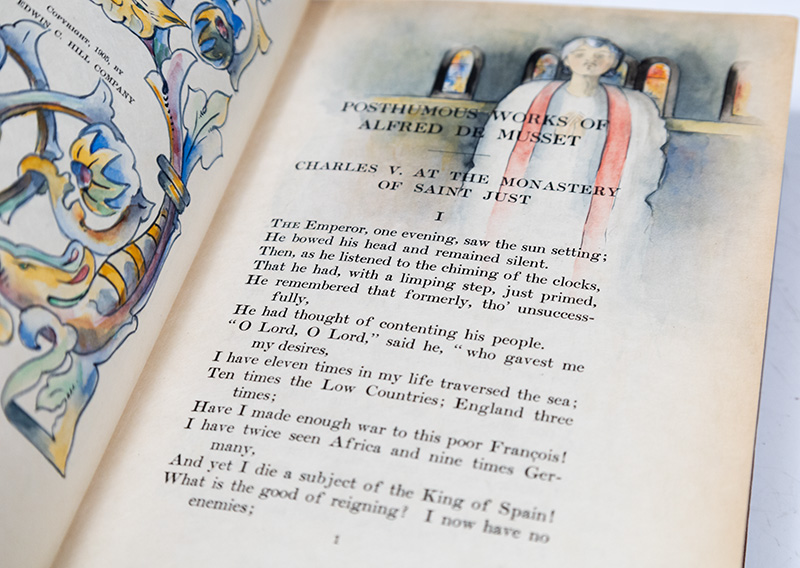 COPYRIGHT, 1905, BY
EDWIN C. HILL COMPANY
POSTHUMOUS WORKS OF
ALFRED DE MUSSET
CHARLES V. AT THE MONASTERY
OF SAINT JUST
I
THE Emperor, one evening, saw the sun setting;
He bowed his head and remained silent.
Then, as he listened to the chiming of the clocks,
That he had, with a limping step, just primed,
He remembered that formerly, tho' unsuccess-
fully,
He had thought of contenting his people.
“O Lord, O Lord,” said he, “who gavest me
my desires,
I have eleven times in my life traversed the sea;
Ten times the Low Countries; England three
times;
Have I made enough war to this poor François!
I have twice seen Africa and nine times Ger-
many,
And yet I die a subject of the King of Spain!
What is the good of reigning? I now have no
enemies;
1